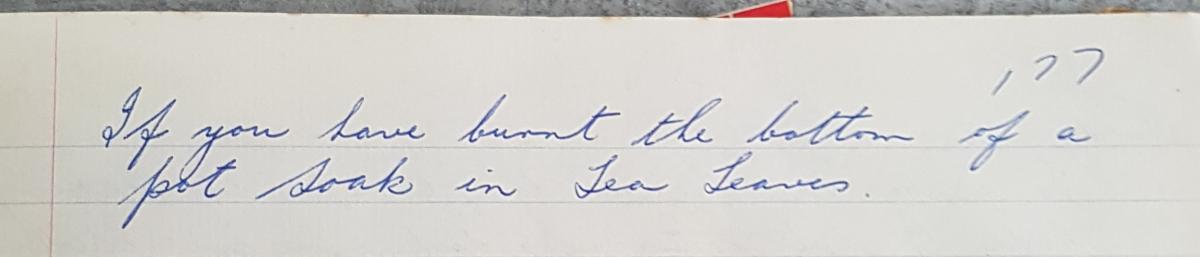 177
If you have burnt the bottom of a
pot soak in Tea Leaves.